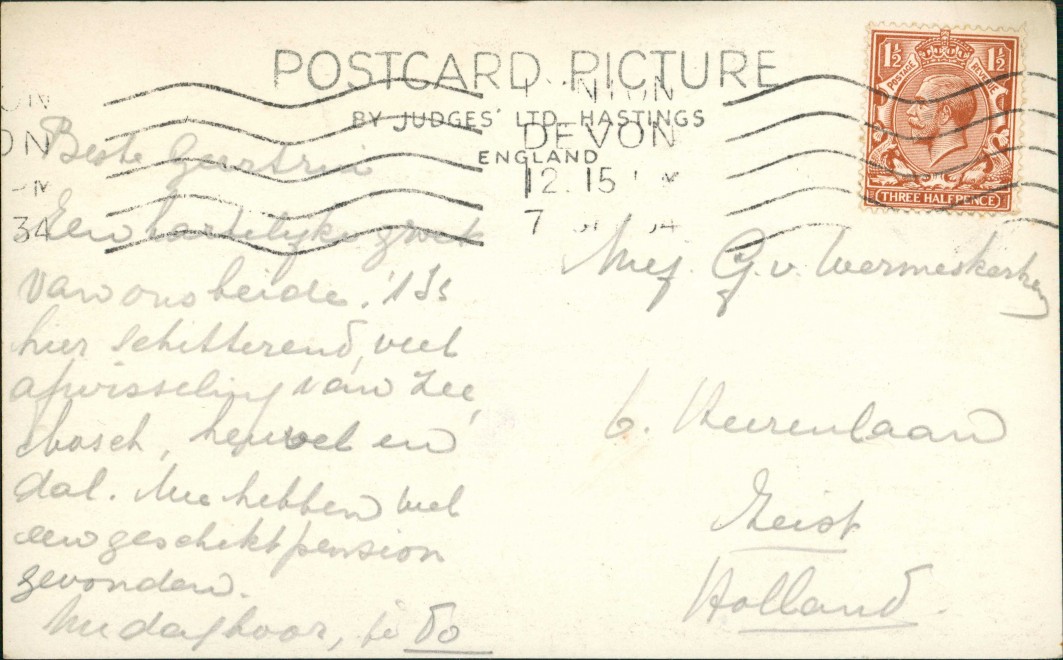 POSTCARD PICTURE
BY JUDGES' LTD. HASTINGS
ENGLAND
DEVON
12.15
7 34
1½ 1½
POSTAGE REVENUE
THREE HALFPENCE
Beste Geertrui
Een hartelijke groet
van ons beide. 't Is
hier schitterend, veel
afwisseling van zee,
bosch, heuvel en
dal. We hebben wel
een geschikt pension
gevonden.
Nu dag hoor, je Do
Mej. G. v. Wermeskerken
6. Heerenlaan
Zeist
Holland.